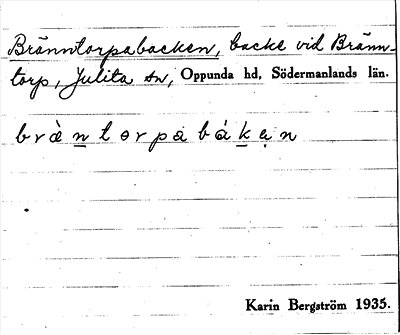 Bränntorpabacken, backe vid Bränn-
torp, Julita sn, Oppunda hd, Södermanlands län.
bràn̲torpabák̲ạn
Karin Bergström 1935.